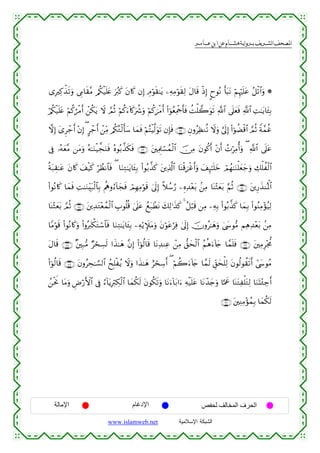 المصحف الشريف برواية هشام عن ابن عامر
۞ وَٱتْلُ عَلَيْهِمْ نَبَأَ نُوحٍ إِذْ قَالَ لِقَوْمِهِۦ يَٰقَوْمِ إِن كَانَ كَبُرَ عَلَيْكُم مَّقَامِى وَتَذْكِيرِى
بِـَٔايَٰتِ ٱللَّهِ فَعَلَى ٱللَّهِ تَوَكَّلْتُ فَأَجْمِعُوٓا۟ أَمْرَكُمْ وَشُرَكَآءَكُمْ ثُمَّ لَا يَكُنْ أَمْرُكُمْ عَلَيْكُمْ
غُمَّةً ثُمَّ ٱقْضُوٓا۟ إِلَىَّ وَلَا تُنظِرُونِ فَإِن تَوَلَّيْتُمْ فَمَا سَأَلْتُكُم مِّنْ أَجْرٍ إِنْ أَجْرِىَ إِلَّا
عَلَى ٱللَّهِ وَأُمِرْتُ أَنْ أَكُونَ مِنَ ٱلْمُسْلِمِينَ فَكَذَّبُوهُ فَنَجَّيْنَٰهُ وَمَن مَّعَهُۥ فِى
ٱلْفُلْكِ وَجَعَلْنَٰهُمْ خَلَٰٓئِفَ وَأَغْرَقْنَا ٱلَّذِينَ كَذَّبُوا۟ بِـَٔايَٰتِنَا فَٱنظُرْ كَيْفَ كَانَ عَٰقِبَةُ
ٱلْمُنذَرِينَ ثُمَّ بَعَثْنَا مِنۢ بَعْدِهِۦ رُسُلًا إِلَىٰ قَوْمِهِمْ فَجَآءُوهُم بِٱلْبَيِّنَٰتِ فَمَا كَانُوا۟
لِيُؤْمِنُوا۟ بِمَا كَذَّبُوا۟ بِهِۦ مِن قَبْلُ كَذَٰلِكَ نَطْبَعُ عَلَىٰ قُلُوبِ ٱلْمُعْتَدِينَ ثُمَّ بَعَثْنَا
مِنۢ بَعْدِهِم مُّوسَىٰ وَهَٰرُونَ إِلَىٰ فِرْعَوْنَ وَمَلَإِيهِۦ بِـَٔايَٰتِنَا فَٱسْتَكْبَرُوا۟ وَكَانُوا۟ قَوْمًا
مُّجْرِمِينَ فَلَمَّا جَآءَهُمُ ٱلْحَقُّ مِنْ عِندِنَا قَالُوٓا۟ إِنَّ هَٰذَا لَسِحْرٌ مُّبِينٌ قَالَ
مُوسَىٰٓ أَتَقُولُونَ لِلْحَقِّ لَمَّا جَآءَكُمْ أَسِحْرٌ هَٰذَا وَلَا يُفْلِحُ ٱلسَّٰحِرُونَ قَالُوٓا۟
أَجِئْتَنَا لِتَلْفِتَنَا عَمَّا وَجَدْنَا عَلَيْهِ ءَابَآءَنَا وَتَكُونَ لَكُمَا ٱلْكِبْرِيَآءُ فِى ٱلْأَرْضِ وَمَا نَحْنُ
لَكُمَا بِمُؤْمِنِينَ
الحرف المخالف لحفص الإدغام الإمالة
الشبكة الإسلامية www.islamweb.net